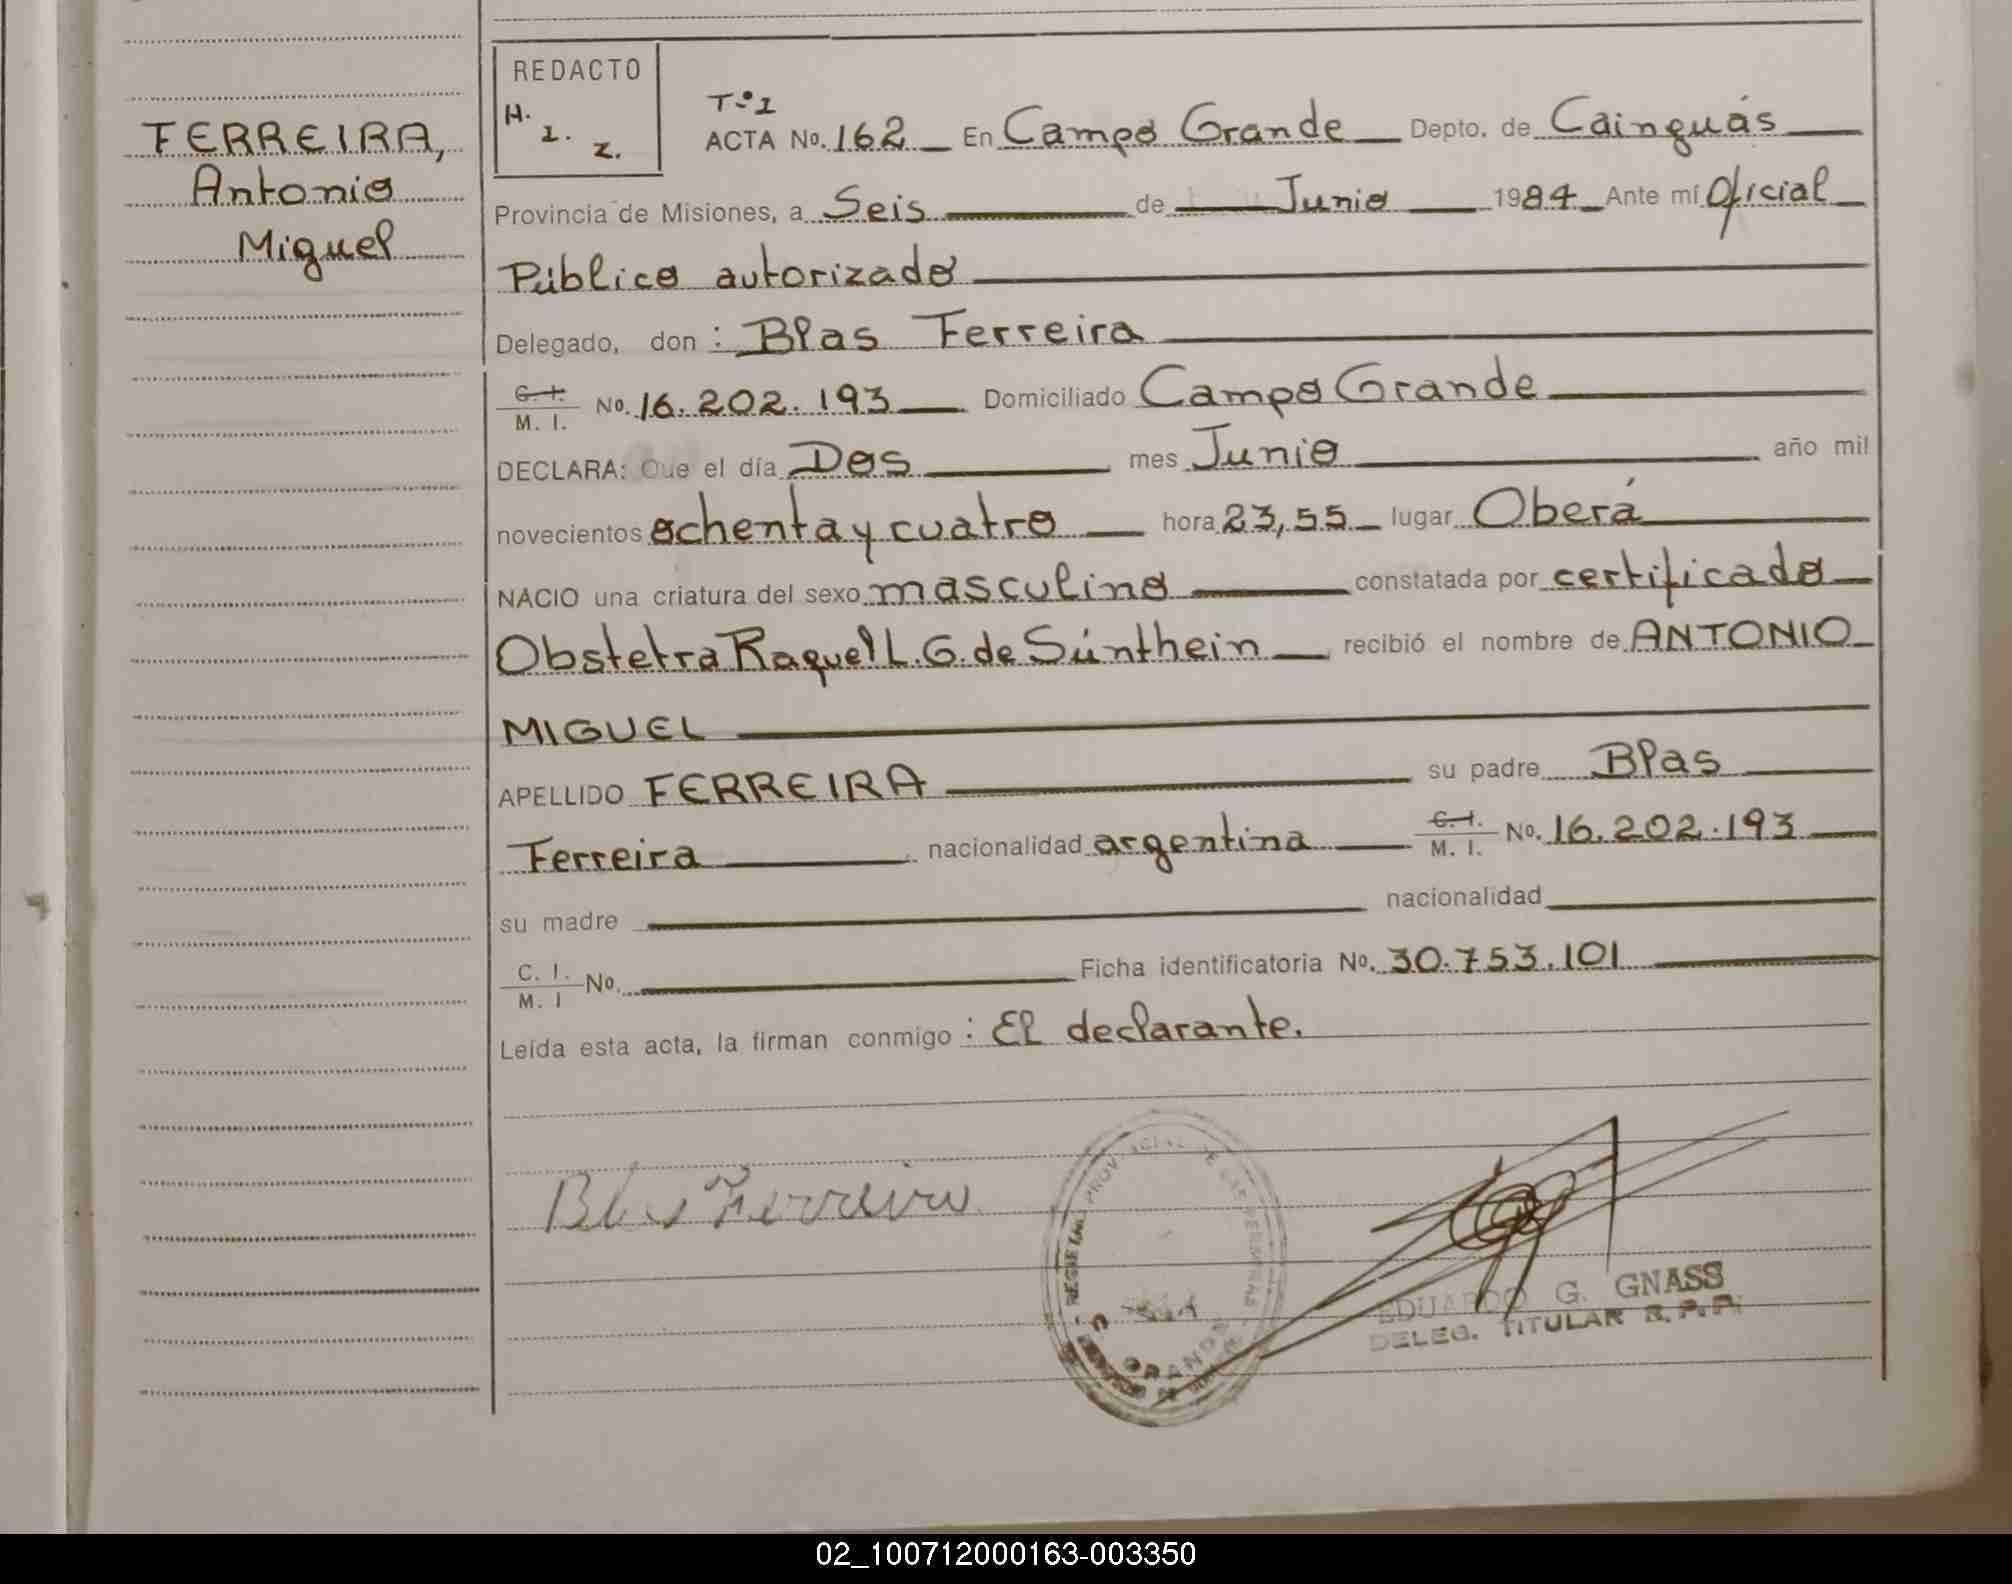 FERREIRA,
Antonio
Miguel
REDACTO
H.
I.
Z.
Tº1
ACTA No. 162 En Campo Grande Depto. de Cainguás
Provincia de Misiones, a Seis de Junio 1984 Ante mí Oficial
Público autorizado
Delegado, don : Blas Ferreira
C. I. M. I. No. 16.202.193 Domiciliado Campo Grande
DECLARA: Que el día Dos mes Junio año mil
novecientos ochenta y cuatro hora 23,55 lugar Oberá
NACIO una criatura del sexo masculino constatada por certificado
Obstetra Raquel L. G. de Súnthein recibió el nombre de ANTONIO
MIGUEL
APELLIDO FERREIRA su padre Blas
Ferreira nacionalidad argentina C. I. M. I. No. 16.202.193
su madre nacionalidad
C. I. M. I No. Ficha identificatoria No. 30.753.101
Leída esta acta, la firman conmigo : El declarante.
Blas Ferreira
EDUARDO G. GNASS
DELEG. TITULAR R.P.P.
02_100712000163-003350